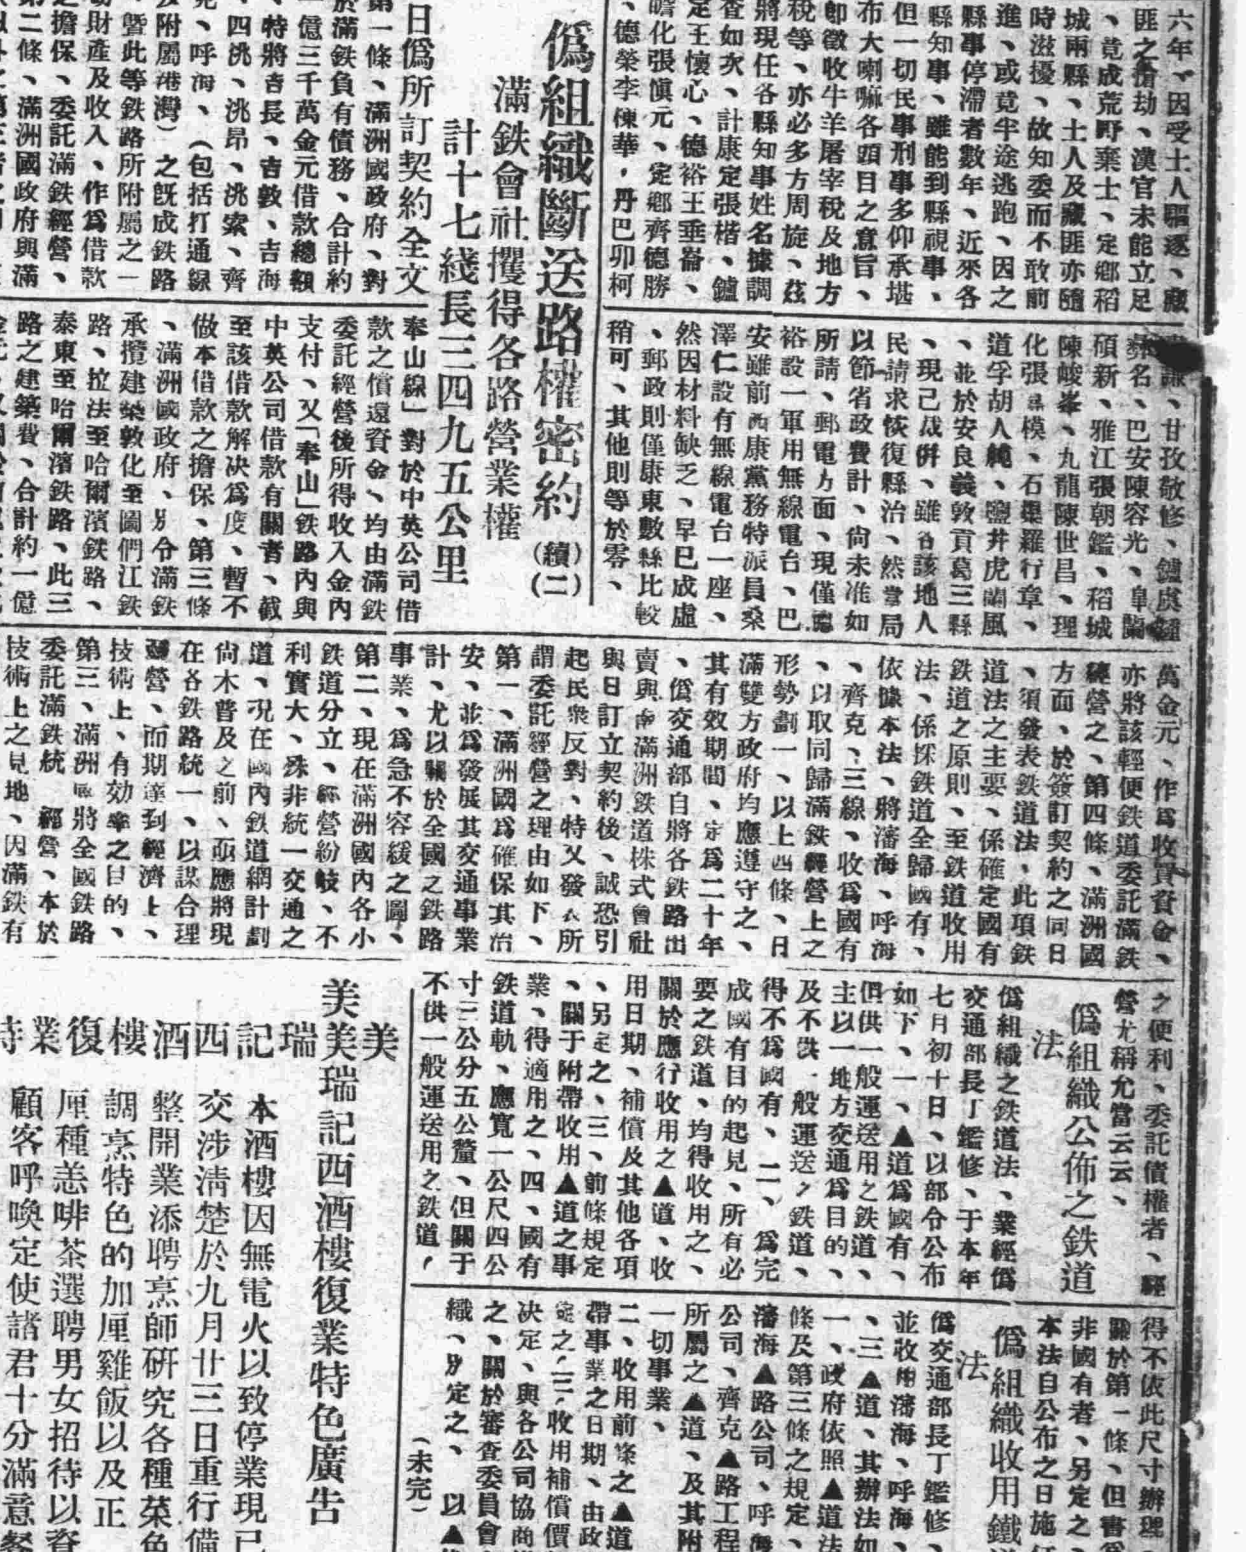 六年、因受土人驅逐、藏
匪之搶劫、漢官未能立足
、竟成荒野棄土、定鄉稻
城兩縣、土人及藏匪亦隨
時滋擾、故知委而不敢前
進、或竟半途逃跑、因之
縣事停滯者數年、近來各
縣知事、雖能到縣視事、
但一切民事刑事多仰承堪
布大喇嘛各頭目之意旨、
即徵收牛羊屠宰稅及地方
稅等、亦必多方周旋、茲
將現任各縣知事姓名據調
查如次、計康定張楷、鑪
定王懷心、德裕王垂崙、
瞻化張愼元、定鄉齊德勝
、德榮李棟華、丹巴卯柯
、甘孜敬修、鑪
名、巴安陳容光、
碩新、雅江張朝鑑、稻城
陳峻峯、九龍陳世昌、理
化張模、石渠羅行章、
道孚胡人純、鹽井虎嘯風
、並於安良義敦貢葛三縣
、現已成併、雖該地人
民請求恢復縣治、然當局
以節省政費計、尙未准如
所請、郵電方面、現僅
裕設一軍用無線電台、巴
安雖前西康黨務特派員桑
澤仁設有無線電台一座、
然因材料缺乏、早已成虛
、郵政則僅康東數縣比較
稍可、其他則等於零、
偽組織斷送路權密約(續(二)
滿鉄會社攫得各路營業權
計十七綫長三四九五公里
日僞所訂契約全文
第一條、滿洲國政府、對
於滿鉄負有債務、合計約
一億三千萬金元借款總額
、特將吉長、吉敦、吉海
、四洮、洮昂、洮索、齊
克、呼海、(包括打通線
及附屬港灣)之既成鉄路
、暨此等鉄路所附屬之一
切財產及收入、作為借款
之擔保、委託滿鉄經營、
第二條、滿洲國政府與滿
奉山線」對於中英公司借
款之償還資金、均由滿鉄
委託經營後所得收入金內
支付、又「奉山」鉄路內與
中英公司借款有關者、截
至該借款解決為度、暫不
做本借款之擔保、第三條
、滿洲國政府、另令滿鉄
承攬建築敦化至圖們江鉄
路、拉法至哈爾濱鉄路、
泰東至哈爾濱鉄路、此三
路之建築費、合計約一億
萬金元、作為收買資金、
亦將該輕便鉄道委託滿鉄
經營之、第四條、滿洲國
方面、於簽訂契約之同日
、須發表鉄道法、此項鉄
道法之主要、係確定國有
鉄道之原則、至鉄道收用
法、係採鉄道全歸國有、
依據本法、將瀋海、呼海
、齊克、三線、收為國有
、以取同歸滿鉄經營上之
形勢劃一、以上四條、日
滿雙方政府均應遵守之、
其有效期間、定為二十年
、偽交通部自將各鉄路出
賣與南滿洲鉄道株式會社
與日訂立契約後、誠恐引
起民衆反對、特又發表所
謂委託經營之理由如下、
第一、滿洲國為確保其治
安、並為發展其交通事業
計、尤以關於全國之鉄路
事業、為急不容緩之圖、
第二、現在滿洲國內各小
鉄道分立、經營紛岐、不
利實大、殊非統一交通之
道、況在國內鉄道網計劃
尙未普及之前、亟應將現
在各鉄路統一、以謀合理
經營、而期達到經濟上、
技術上、有効率之目的、
第三、滿洲國將全國鉄路
委託滿鉄統一經營、本於
技術上之見地、因滿鉄有
之便利、委託債權者、經
營尤稱允當云云、
僞組織公佈之鉄道
法
僞組織之鉄道法、業經僞
交通部長丁鑑修、于本年
七月初十日、以部令公布
如下、一、▲道為國有、
但供一般運送用之鉄道、
主以一地方交通為目的、
及不供一般運送之鉄道、
得不為國有、二、為完
成國有目的起見、所有必
要之鉄道、均得收用之、
關於應行收用之▲道、收
用日期、補償及其他各項
、另定之、三、前條規定
、關于附帶收用▲道之事
業、得適用之、四、國有
鉄道軌、應寬一公尺四公
寸三公分五公釐、但關于
不供一般運送用之鉄道、
得不依此尺寸辦理
關於第一條、但書
非國有者、另定之、
本法自公布之日施
僞組織收用鐵
法
僞交通部長丁鑑修、
並收用瀋海、呼海、
、三▲道、其辦法如
一、政府依照▲道法
條及第三條之規定、
瀋海▲路公司、呼海
公司、齊克▲路工程
所屬之▲道、及其附
一切事業、
二、收用前條之▲道
帶事業之日期、由政
定之、三、收用補償價
決定、與各公司協商
之、關於審查委員會
織、另定之、以▲
(未完)
美美瑞記西酒樓復業特色廣告
美瑞記西酒樓復業特
本酒樓因無電火以致停業現已
交涉清楚於九月廿三日重行備
整開業添聘烹師研究各種菜色
調烹特色的加厘雞飯以及正
厘種羔啡茶選聘男女招待以資
顧客呼喚定使諸君十分滿意